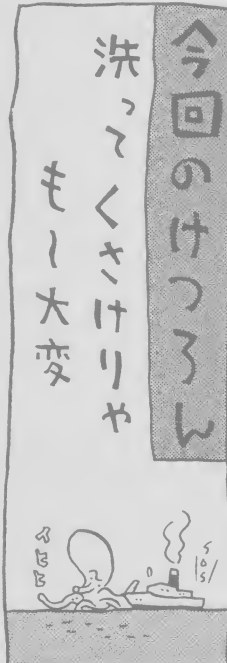 今回のけつろん
洗ってくさけりゃ
も〜大変
SOS
イヒヒ